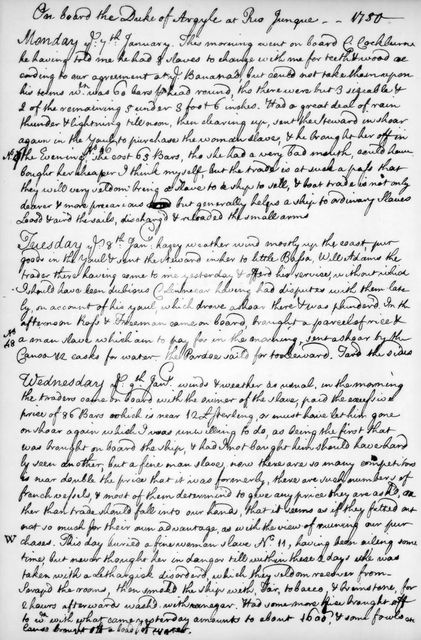 On board the Duke of Argyle at Rio Junque - - 1750
Monday ye. 7th January. This morning went on board C. Cockburne
he having told me he had 8 slaves to change with me for teeth & wood ac
cording to our agreement at ye Bananas but could not take them upon
his terms wch. was 60 bars pr head round, tho there were but 3 sizeable &
2 of the remaining 5 under 3 foot 6 inches. Had a great deal of rain
thunder & lightning till noon, then clearing up, sent the Steward in shoar
again in the Yaul to purchase the woman slave, & he brought her off in
the Evening, No. she cost 63 Bars, tho she had a very bad mouth, could have
bought her cheaper I think myself, but the trade is at such a pass that
they will very seldom bring a Slave to a ship to sell, & boat trade is not only
dearer & more precareous but generally helps a ship to ordinary Slaves
Loos'd & air'd the sails, discharg'd & reloaded the small arms
Tuesday ye. 8th. Jany. hazey weather wind mostly up the coast put
goods in the Yaul & sent the Steward in her to little Bassa. Will Adams the
trader there having come to me yesterday & offer'd his services, without which
I should have been dubious having had disputes with them late
ly, on account of his yaul, which drove ashoar there & was plunder'd. In the
afternoon & Freeman came on board, brought a parcel of rice &
No
48
a man slave which am to pay for in the morning, sent ashoar by the
Canoa 12 casks for water. The sail'd for to leeward. Tar'd the sides
Wednesday ye. 9th. Jany. winds & weather as usual, in the morning
the traders came on board with the owner of the slave, paid the excessive
price of 86 Bars which is near 12£ sterling, or must have let him gone
on shoar again which I was unwilling to do, as being the first that
was brought on board the ship, & had I not bought him should have hard
ly seen another. but a fine man slave, now there are so many competitors
is near double the price that it was formerly, there are such numbers of
french vessels, & most of them determin'd to give any price they are ask'd, ra
ther than trade should fall into our hands, that it seems as if they fitted out
not so much for their own advantage, as with the view of ruining our pur
chases. This day buried a fine woman slave No. 11, having been ailing some
W
time, but never thought her in danger till within these 2 days she was
taken with a lethargick disorder, which they seldom recover from.
Scraped the rooms, then smoked the ship with Tar, tobacco, & brimstone, for
2 hours afterward wash'd with vinegar. Had some more rice brought off
to wch. with what came yesterday amounts to about 1600lb, & some fowls